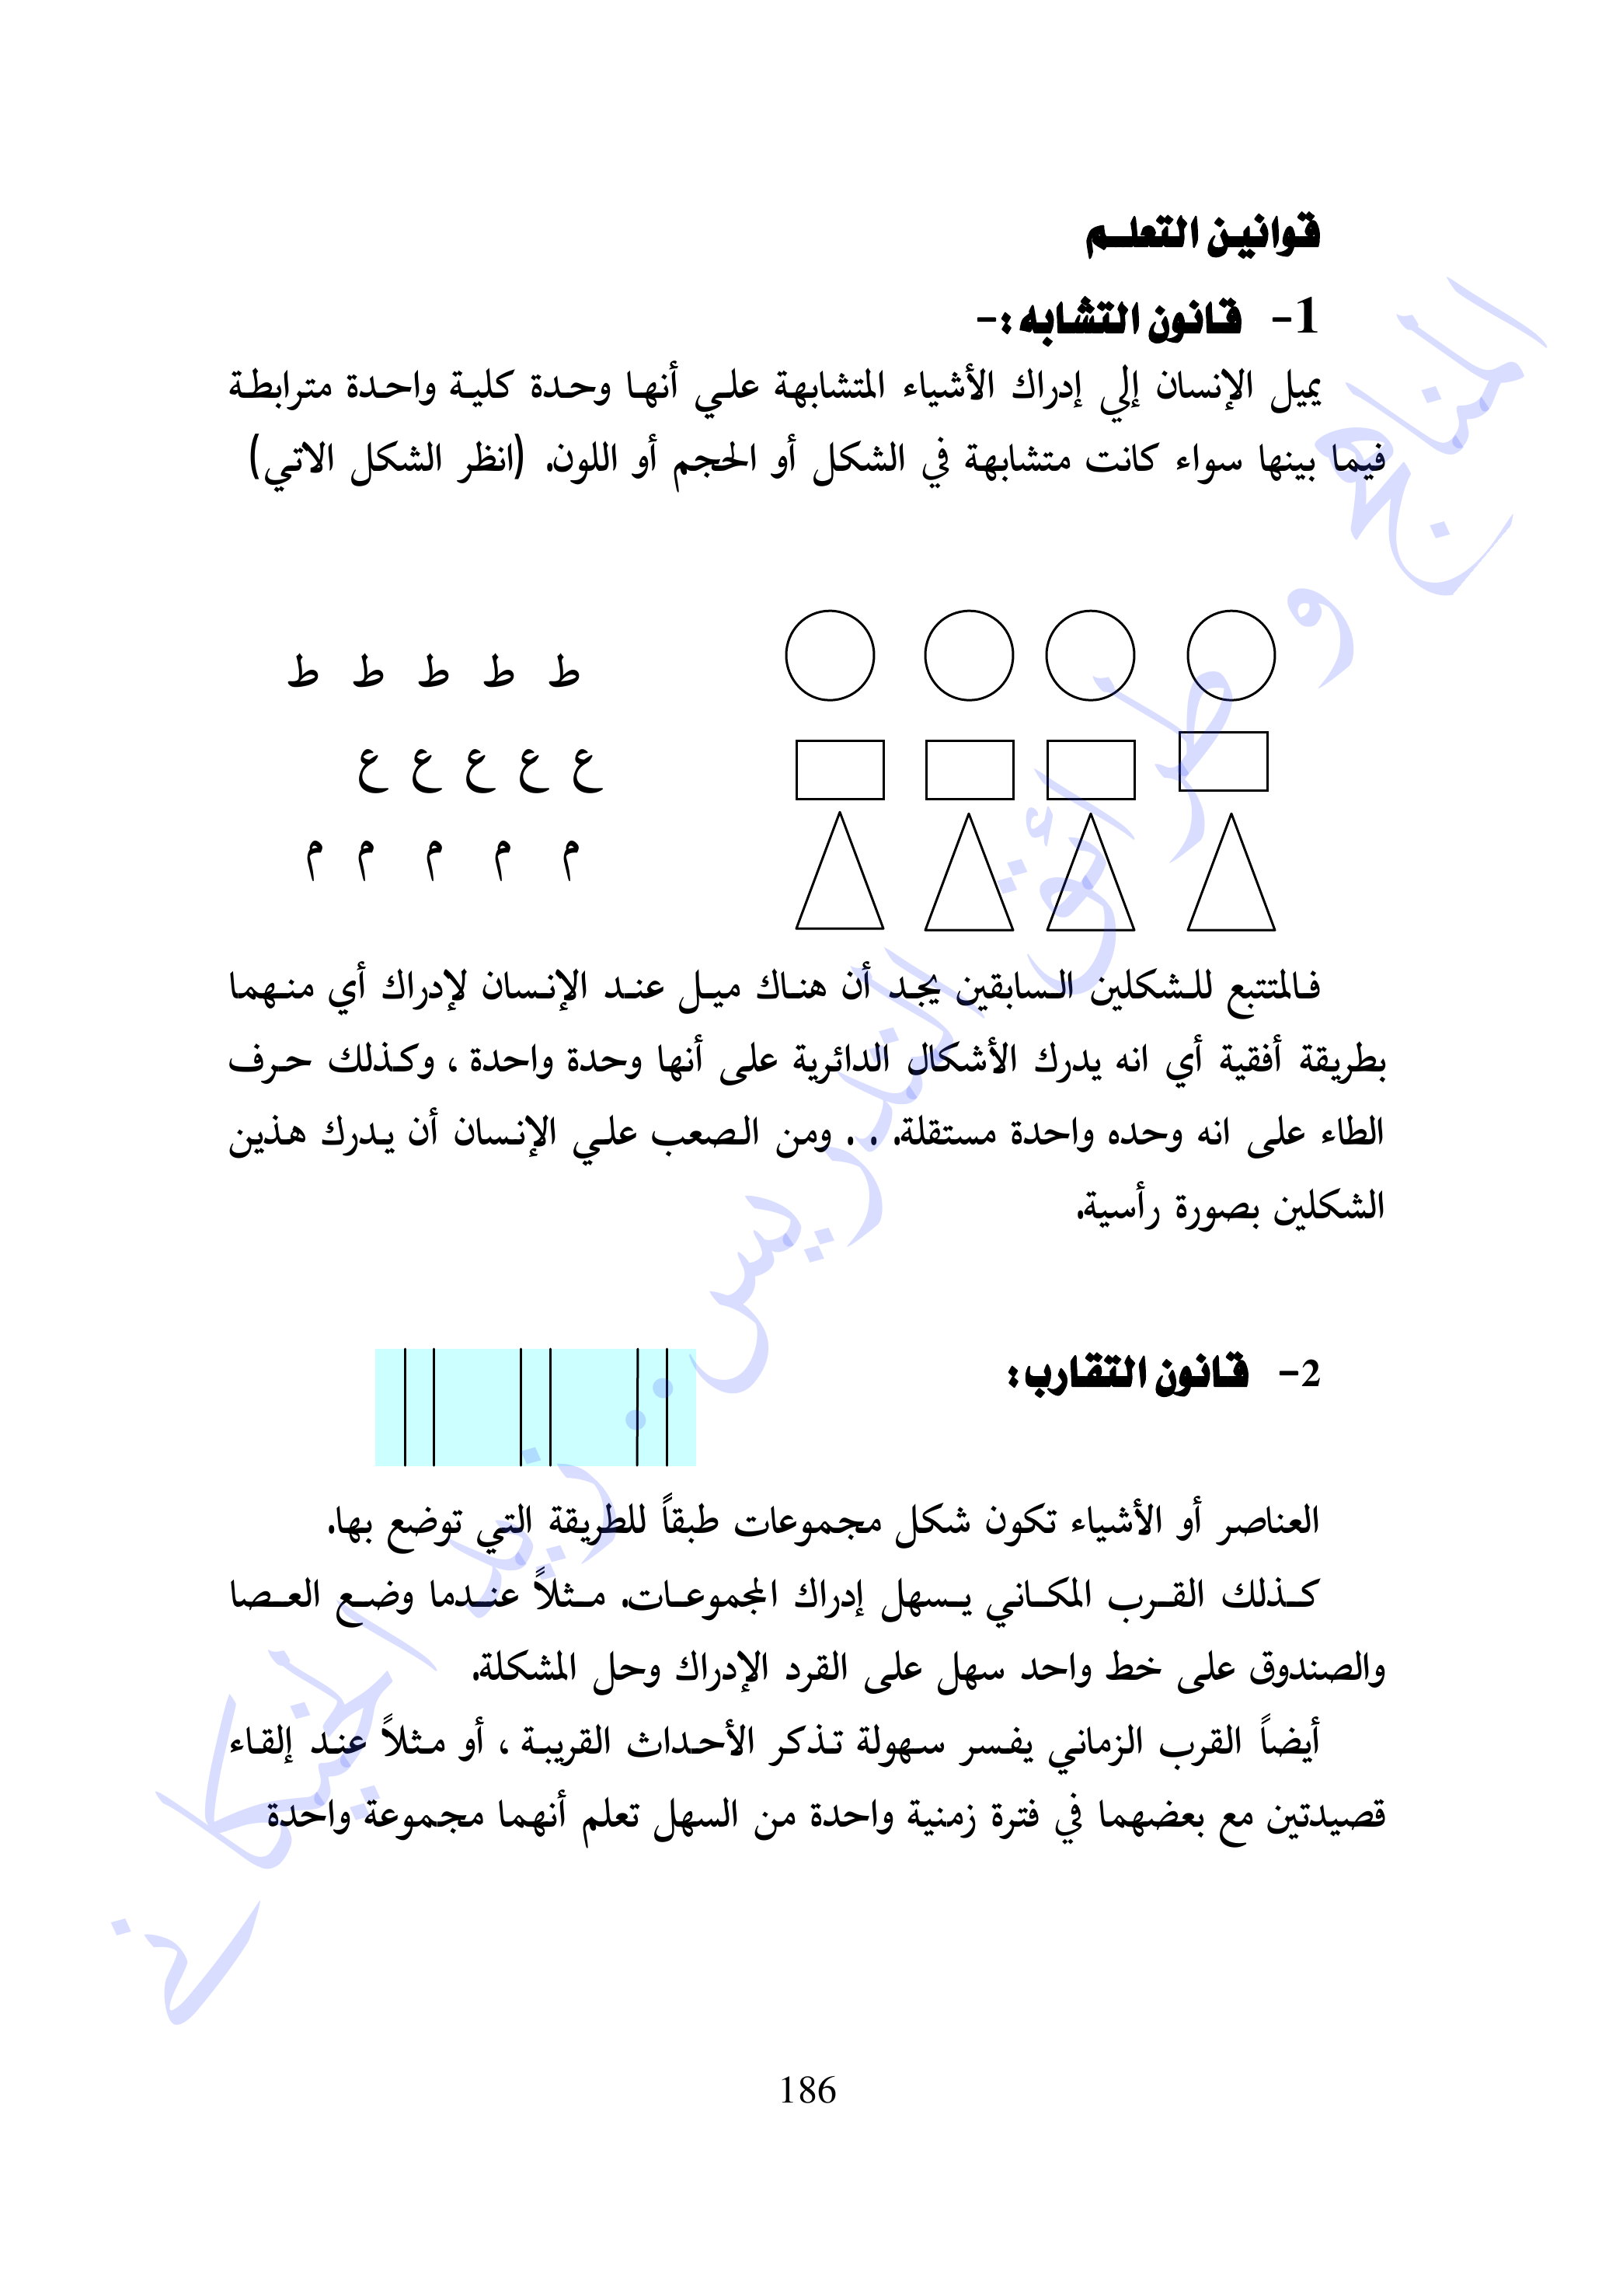 قوانين التعلم
1- قانون التشابه :-
يميل الإنسان إلي إدراك الأشياء المتشابهة علي أنها وحدة كلية واحدة مترابطة
فيما بينها سواء كانت متشابهة في الشكل أو الحجم أو اللون. (انظر الشكل الاتي)
ط ط ط ط ط
ع ع ع ع ع
م م م م م
فالمتتبع للشكلين السابقين يجد أن هناك ميل عند الإنسان لإدراك أي منهما
بطريقة أفقية أي انه يدرك الأشكال الدائرية على أنها وحدة واحدة ، وكذلك حرف
الطاء على انه وحده واحدة مستقلة. . . ومن الصعب علي الإنسان أن يدرك هذين
الشكلين بصورة رأسية.
2- قانون التقارب :
العناصر أو الأشياء تكون شكل مجموعات طبقاً للطريقة التي توضع بها.
كذلك القرب المكاني يسهل إدراك المجموعات. مثلاً عندما وضع العصا
والصندوق على خط واحد سهل على القرد الإدراك وحل المشكلة.
أيضاً القرب الزماني يفسر سهولة تذكر الأحداث القريبة ، أو مثلاً عند إلقاء
قصيدتين مع بعضهما في فترة زمنية واحدة من السهل تعلم أنهما مجموعة واحدة
186
المناهج و طرائق التدريس.. زيد الخيكاني